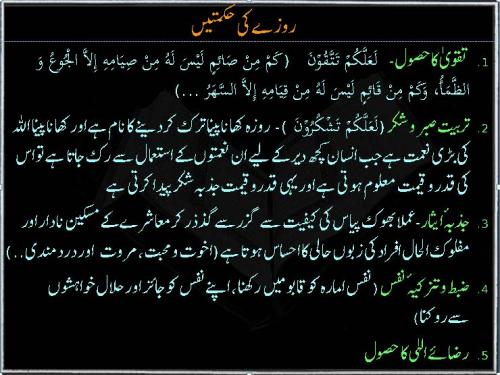 روزے کی حکمتیں
1. تقویٰ کا حصول - لَعَلَّكُمْ تَتَّقُوْنَ (كَمْ مِنْ صَائِمٍ لَيْسَ لَهُ مِنْ صِيَامِهِ إِلاَّ الْجُوعُ وَ
الظَّمَأُ، وَكَمْ مِنْ قَائِمٍ لَيْسَ لَهُ مِنْ قِيَامِهِ إِلاَّ السَّهَرُ ...)
2. تربیت صبر و شکر (لَعَلَّكُمْ تَشْكُرُوْنَ) - روزہ کھانا پینا ترک کر دینے کا نام ہے اور کھانا پینا اللہ
کی بڑی نعمت ہے جب انسان کچھ دیر کے لیے ان نعمتوں کے استعمال سے رک جاتا ہے تو اس
کی قدر و قیمت معلوم ہوتی ہے اور یہی قدر و قیمت جذبہ شکر پیدا کرتی ہے
3. جذبہ ایثار - عملا بھوک پیاس کی کیفیت سے گزر سے گذر کر معاشرے کے مسکین نادار اور
مفلوک الحال افراد کی زبوں حالی کا احساس ہوتا ہے (اخوت و محبت، مروت اور درد مندی ..)
4. ضبط و تزکیۂ نفس (نفس امارہ کو قابو میں رکھنا، اپنے نفس کو جائز اور حلال خواہشوں
سے روکنا)
5. رضائے الٰہی کا حصول